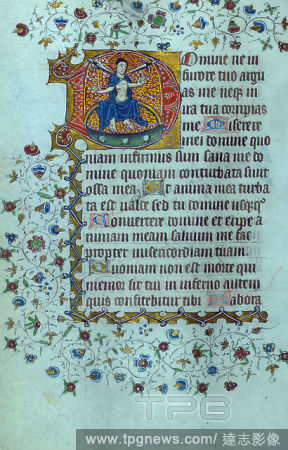 Domine ne in
furore tuo argu
as me neqz in
ira tua corripias
me Miserere
mei domine quo
niam infirmus sum sana me do
mine quoniam conturbata sunt
ossa mea Et anima mea turba
ta est valde sed tu domine usqzqz
Convertere domine et eripe a
nimam meam salvum me fac
propter misericordiam tuam
Quoniam non est in morte qui
memor sit tui in inferno autem
quis confitebitur tibi Labora
TPG
www.tpgnews.com / 達志影像